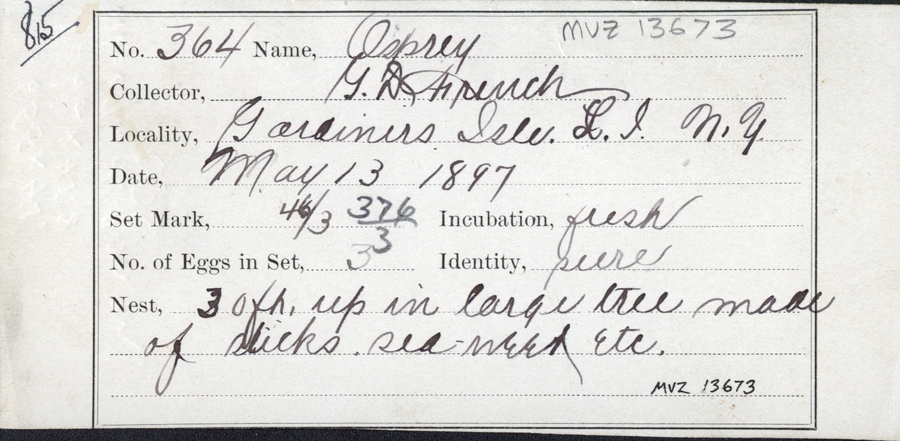 815
MVZ 13673
No. 364 Name, Osprey
Collector, G. D. French
Locality, Gardiners Isle. L. I. N. Y
Date, May 13 1897
Set Mark, 46/3 376/3 Incubation, fresh
No. of Eggs in Set, 3 Identity, sure
Nest, 30 ft. up in large tree made
of sticks. sea-weed etc.
MVZ 13673